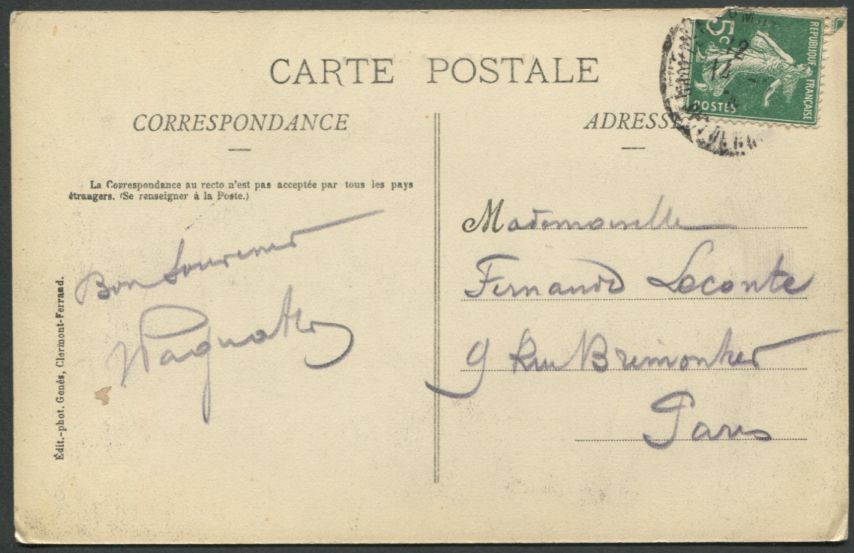 CARTE POSTALE
CORRESPONDANCE
La Correspondance au recto n'est pas acceptée par tous les pays
étrangers. (Se renseigner à la Poste.)
Bon Souvenir
Édit.-phot. Genés, Clermont-Ferrand.
ADRESSE
REPUBLIQUE FRANÇAISE
5c
POSTES
Mademoiselle
Fernande Leconte
9 Rue Bremontier
Paris